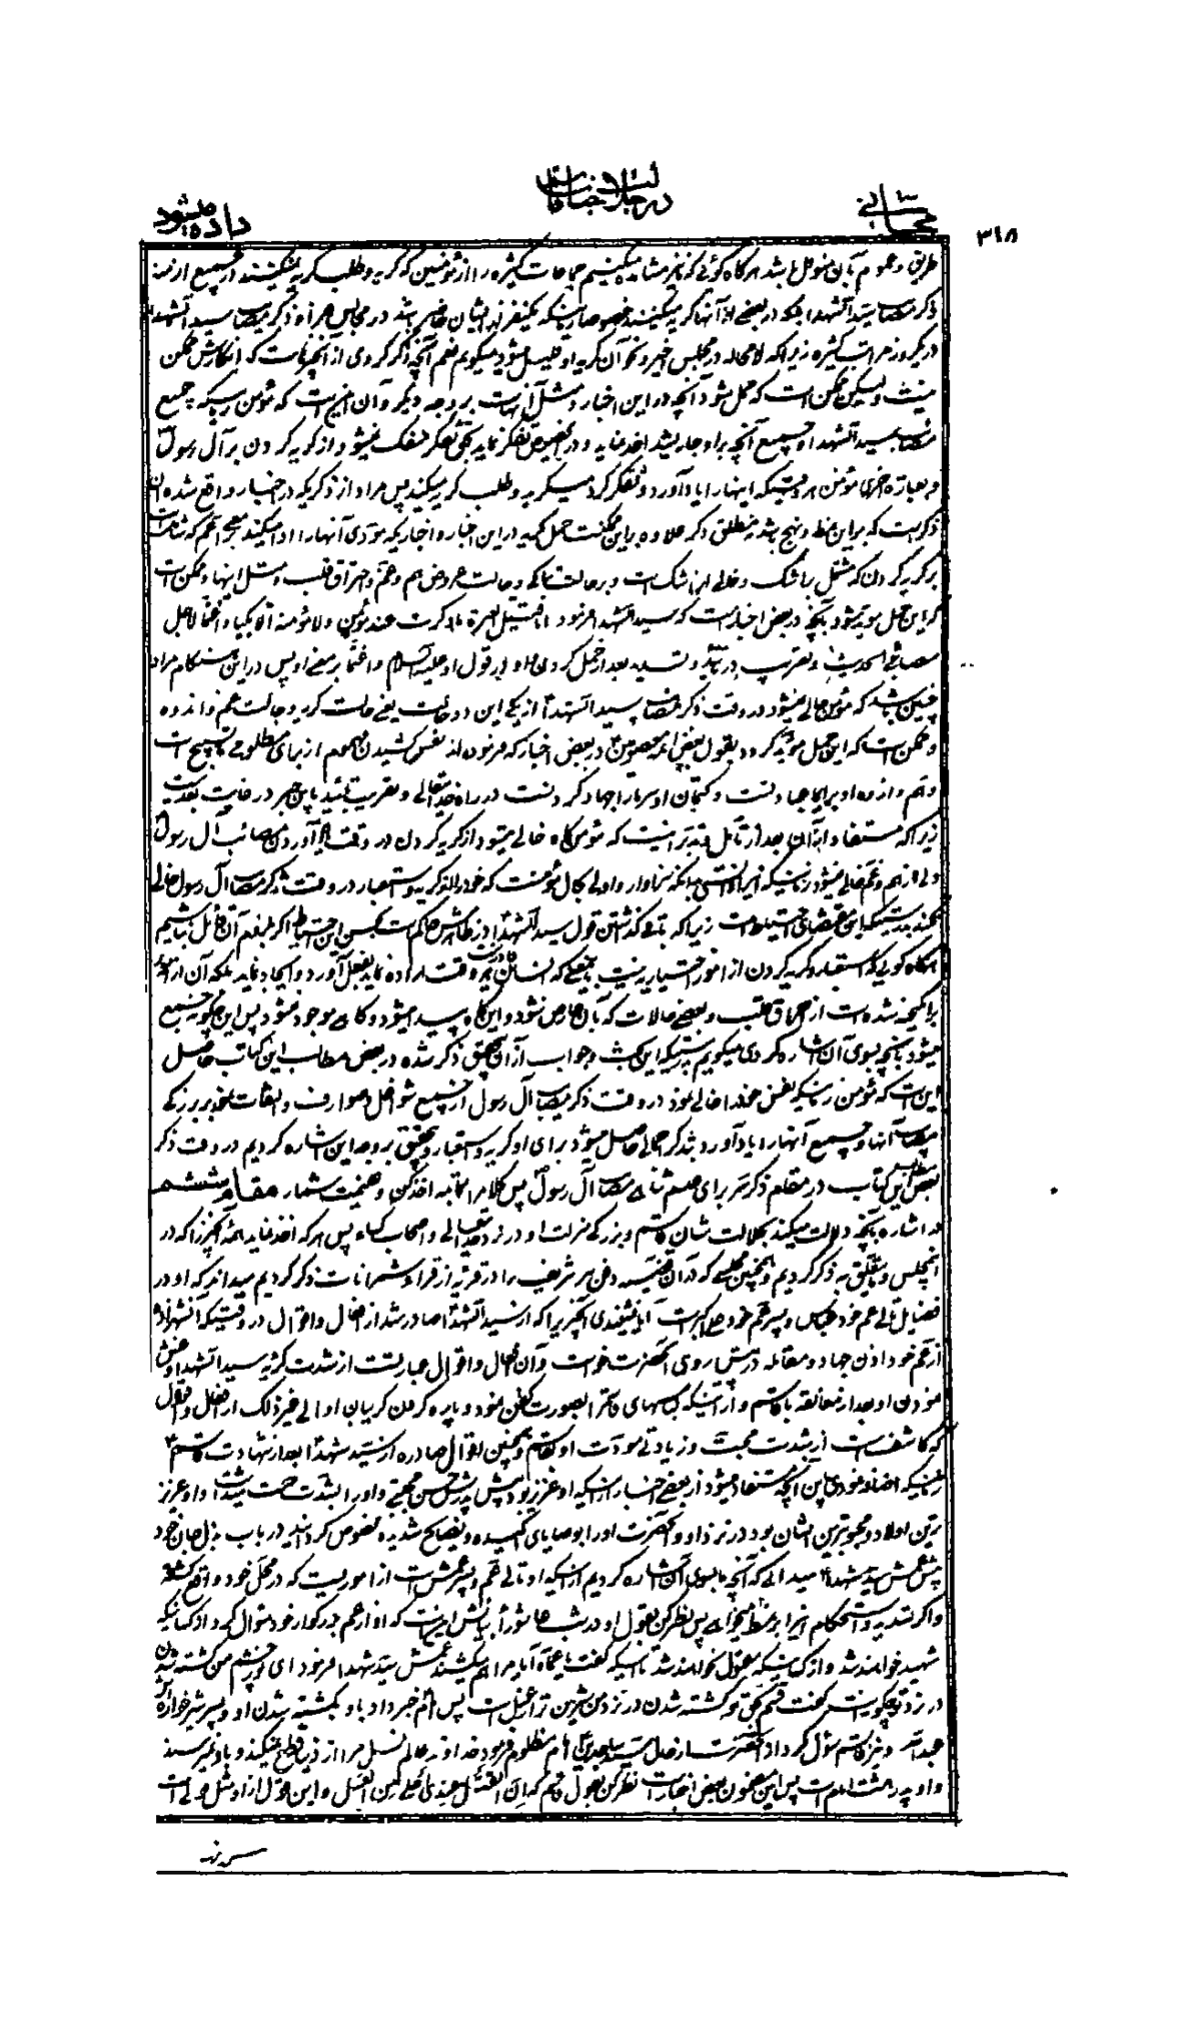 ۳۱۸
در جلالت جناب قاسم
داده میشود
طریق وعموم بآن متوصل باشد هرگاه گوئی که نیز مشاهده میکنیم جماعات کثیره را از مؤمنین که گریه وطلب گریه نمیکنند در جمیع ازمنه
ذکر مصائب سید الشهدا بلکه در بعضی آنها گریه میکنند خصوصا زمانیکه یکنفر از ایشان حاضر باشد در مجالس ذکر مصائب سید الشهدا
در یکروز مرات کثیره زیرا که لامحاله در مجلس اخیر ونحو آن گریه او قلیل میشود میگویم نعم آنچه ذکر کردی از آنچیزهاست که انکارش ممکن
نیست ولیکن ممکن است که حمل شود آنچه در این اخبار ومثل آنهاست بر وجه دیگر وآن اینست که مؤمن زمانیکه جمیع
مصائب سید الشهدا وجمیع آنچه بر او جاری شد اخذ نماید ودر تفکر نماید منفک نمیشود از گریه کردن بر آل رسول
وبعبارة اخری مؤمن هر وقتیکه اینها را یاد آورد وتفکر کرد میگرید وطلب گریه میکند پس مراد از ذکریکه در اخبار واقع شده
ذکریست که بر این نمط ونهج باشد نه مطلق ذکر علاوه بر این ممکنست حمل گریه در این اخبار واخباریکه مؤدی آنها را ادا میکنند بمعنی اعم که شامل است
بر گریه کردن که مشتمل باشک وخالی از اشک است وبر حالت تباکی وحالت عروض هم وغم واحتراق قلب ومثل اینها وممکن است
که این حمل مؤید شود بآنچه در بعض اخبار است که سید الشهدا فرمود انا قتیل العبرة ما ذکرت عند مؤمن ولا مؤمنة الا بکیا واغتما لاجل
مصائبی الحدیث وتقریب در تأیید وتسدید بعد از حمل کردن واو در قول او علیه السلام واغتما بر معنی او پس در این هنگام مراد
چنین باشد که مؤمن خالی نمیشود در وقت ذکر مصائب سید الشهدا از یکی این دو حالت یعنی حالت گریه وحالت غم واندوه
وممکن است که این حمل مؤید گردد بقول بعض ائمه معصومین در بعض اخبار که فرمودند نفس کشیدن مهموم از برای مظلومی ما تسبیح است
وهم واندوه او برای ما عبادتست وکتمان او سر ما را جهاد کردنست در راه خدایتعالی وتقریب تأیید باین خبر در غایت بعد نیست
زیرا که مستفاد از آن بعد از تأمل وتدبر اینست که مؤمن گاه خالی میشود از گریه کردن در وقت یاد آوردن مصائب آل رسول
ولی از هم وغم خالی نمیشود زمانیکه این را دانستی بدانکه سزاوار واولی بحال مؤمنست که خود را از گریه واستعبار در وقت تذکر مصائب آل رسول خالی
نکند بدرستیکه این مقتضای احتیاط است زیرا که باقی گذاشتن قول سید الشهدا در ظاهرش حاکم است بحسن این احتیاط اگر بلزوم آن قائل نباشیم
هرگاه گوئی که استعبار وگریه کردن از امور اختیاریه نیست بمعنی که انسان قادر نیست هر وقت اراده نماید بفعل آورد وایجاد نماید بلکه آن امریست
برانگیخته شده است از احتراق قلب وبعضی حالات که بآن عارض میشود واین گاه پیدا میشود وگاه موجود نمیشود پس این چگونه جمع
میشود بآنچه بسوی آن اشاره کردی میگویم بدرستیکه این بحث وجواب از آن بتحقیق ذکر شده در بعض مطالب این کتاب حاصل
این است که مؤمن زمانیکه نفس خود را خالی نمود در وقت ذکر مصائب آل رسول از جمیع شواغل وصوارف والتفات نمود بر بزرگی
مصائب آنها وجمیع آنها را یاد آورد بتذکر اجمالی حاصل میشود برای او گریه واستعبار وبتحقیق بر وجه این اشاره کردیم در وقت ذکر
بعض مطالب این کتاب در مقام ذکر سر برای عدم تناهی مصائب آل رسول پس کلام را بتمامه اخذ کن وغنیمت شمار مقام ششم
در اشاره بآنچه دلالت میکند بجلالت شان قاسم وبزرگی منزلت او در نزد خدایتعالی واصحاب کساء پس هر که اخذ نماید همه آنچیز را که در
این مجلس وما یتعلق به ذکر کردیم وهمچنین مجلسی که در آن قضیه دفن سر شریف را در قریه از قراء شمیرانات ذکر کردیم میداند که او در
فضایل تالی عم خود عباس وپسر عم خود علی اکبر است آیا نشنیدی آنچیزی را که از سید الشهدا صادر شد از افعال واقوال در وقتیکه آنشهزاده
از عم خود اذن جهاد ومقاتله در پیش روی آنحضرت خواست وآن افعال واقوال عبارتست از شدت گریه سید الشهدا وغش
نمودن او بعد از معانقه با قاسم واز اینکه لباسهای قاسم را بصورت کفن نمود وپاره کردن گریبان او الی غیر ذلک از افعال واقوال
که کاشف است از شدت محبت وزیادتی مودت او بقاسم وهمچنین اقوال صادره از سید شهدا بعد از شهادت قاسم
زمانیکه اضافه نمودی باین آنچه مستفاد میشود از بعضی اخبار از اینکه او عزیز بود پیش پدرش حسن مجتبی واو را بشدت دوست میداشت واو عزیز
ترین اولاد ومحبوبترین ایشان بود در نزد او وآنحضرت او را بوصایای اکیده ونصایح شدیده مخصوص گردانید در باب بذل جان خود
پیش عمش سید شهدا میدانی که آنچه ما بسوی آن اشاره کردیم از اینکه او تالی عم وپسر عمش است از اموریست که در محل خود واقع گشته
واگر تسدید واستحکام اینرا میخواهی پس نظر کن بقول او در شب عاشورا بیانش اینست که او از عم بزرگوار خود سئوال کرد از کسانیکه
شهید خواهند شد واز کسانیکه مقتول نخواهند شد تا اینکه گفت یا عماه آیا مرا هم میکشند عمش سید شهدا فرمود ای نور چشم من کشته شدن
در نزد تو چگونه است گفت قسم بحق تو کشته شدن در نزد من شیرین تر از عسل است پس امام خبر داد باو بکشته شدن او وپسر شیرخواره
عبدالله ونیز قاسم سئوال کرد از آنحضرت از حال سید ساجدین امام مظلوم فرمود خداوند عالم نسل مرا از دنیا قطع نمیکند وباو نمیرسند
واو پدر هشت امام است پس این مضمون بعض اخبار است نظر کن بقول قاسم که ان القتل عندی احلی من العسل واین قول از او مثل قولی است